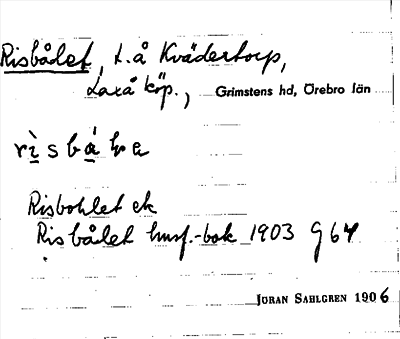 Risbålet, t.å Kvädertorp,
Laxå köp., Grimstens hd, Örebro län
Risbohlet ek
Risbålet husf.-bok 1903 G 64
JÖRAN SAHLGREN 1906